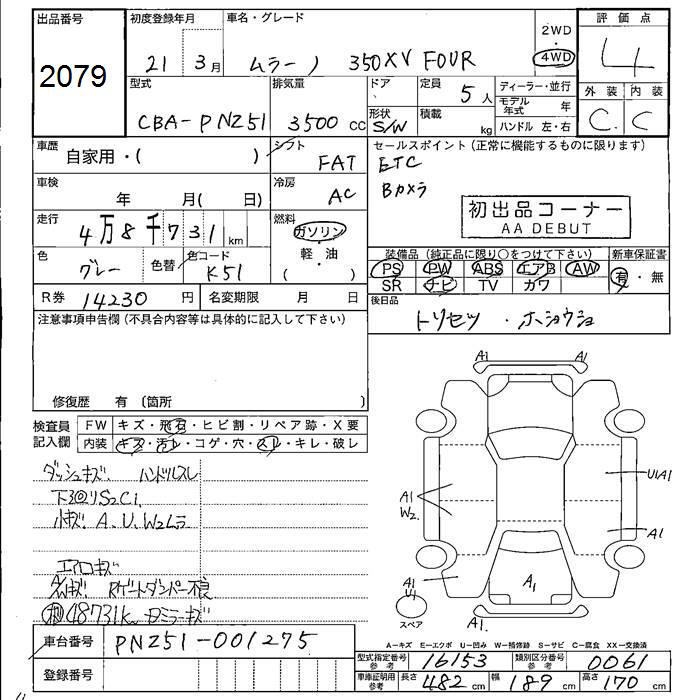 出品番号 初度登録年月 車名・グレード 2WD 評価点
2079 21 3月 ムラーノ 350XV FOUR 4WD 4
型式 排気量 ドア 定員 5人 ディーラー・並行 外装 内装
CBA-PNZ51 3500cc 形状 S/W 積載 kg モデル年式 年 C. C
ハンドル 左・右
車歴 自家用・( ) シフト FAT セールスポイント(正常に機能するものに限ります)
ETC
Bカメラ
車検 年 月( 日) 冷房 AC
初出品コーナー
AA DEBUT
走行 4万8千731km 燃料 ガソリン・軽・油 ( )
色 グレー 色替 色コード K51
装備品(純正品に限り○をつけて下さい) 新車保証書
PS PW ABS エアB AW 有・無
SR ナビ TV カワ
R券 14230円 名変期限 月 日 後日品
トリセツ・ホショウショ
注意事項申告欄(不具合内容等は具体的に記入して下さい)
修復歴 有(箇所 )
検査員記入欄 FW キズ・飛石・ヒビ割・リペア跡・X要
内装 キズ・汚レ・コゲ・穴・スレ・キレ・破レ
ダッシュキズ ハンドルスレ
下回りS2C1
小キズ A、U、W2ムラ
エアロキズ
A/Wキズ Rゲートダンパー不良
48731k ドアミラーキズ
A1 A1
A1 W2 U1A1
A1
A1 U1 A1
スペア A1.
A-キズ E-エクボ U-凹み W-補修跡 S-サビ C-腐食 XX-交換済
車台番号 PNZ51-001275
型式指定番号 参考 16153 類別区分番号 参考 0061
登録番号
車庫証明用 参考 長さ 482cm 幅 189cm 高さ 170cm